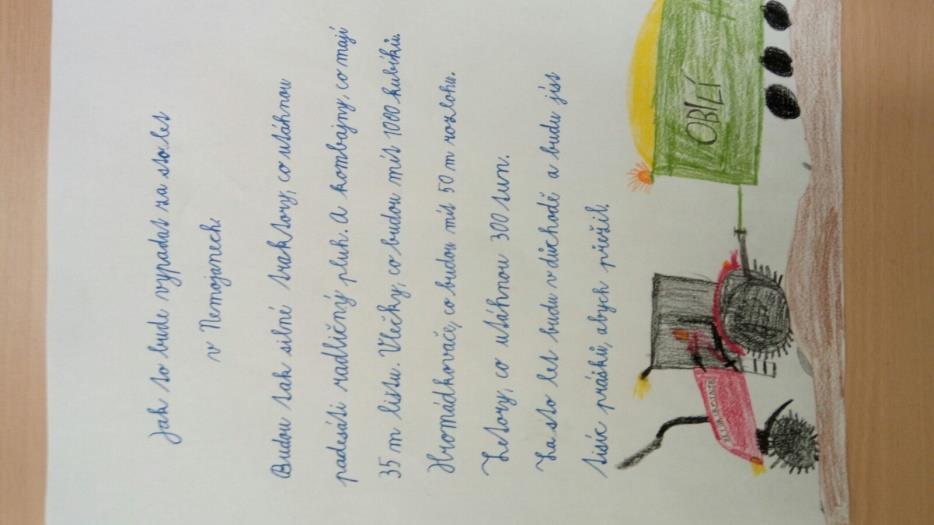 Jak to bude vypadat za sto let
v Nemojanech.
Budou tak silné traktory, co utáhnou
padesáti radličný pluh. A kombajny, co mají
35 m lištu. Vlečky, co budou mít 1000 kubíků.
Hromádkovače, co budou mít 50 m rozlohu.
Zetory, co utáhnou 300 tun.
Za sto let budu v důchodě a budu jíst
tisíc prášků, abych přežil.
OBILÍ